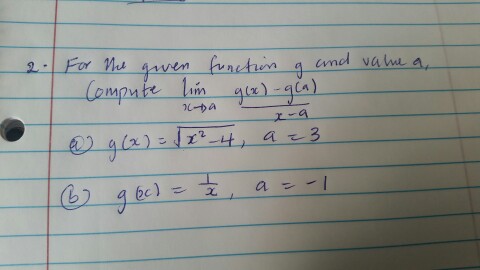 2. For the given function g and value a,
Compute lim x→a g(x) - g(a) / x - a
(a) g(x) = √x² - 4, a = 3
(b) g(x) = 1/x, a = -1